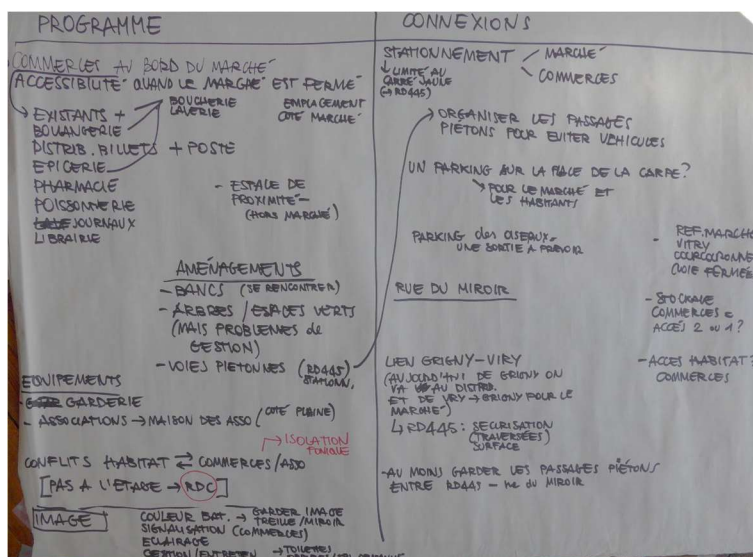 PROGRAMME
COMMERCES AU BORD DU MARCHÉ
ACCESSIBILITÉ QUAND LE MARCHÉ EST FERMÉ
EXISTANTS +
BOULANGERIE
DISTRIB. BILLETS + POSTE
EPICERIE
PHARMACIE
POISSONNERIE
JOURNAUX
LIBRAIRIE
BOUCHERIE
LAVERIE
EMPLACEMENT
COTÉ MARCHÉ
- ESPACE DE
PROXIMITÉ -
(HORS MARCHÉ)
AMÉNAGEMENTS
- BANCS (SE RENCONTRER)
- ARBRES / ESPACES VERTS
(MAIS PROBLEMES de
GESTION)
- VOIES PIETONNES (RD445)
STATIONN.
EQUIPEMENTS
- GARDERIE
- ASSOCIATIONS → MAISON DES ASSO (COTÉ PLAINE)
→ ISOLATION
CONFLITS HABITAT ⇄ COMMERCES/ASSO
[PAS A L'ETAGE → RDC]
IMAGE
COULEUR BAT. → GARDER IMAGE
TREILLE/MIROIR
SIGNALISATION (COMMERCES)
ECLAIRAGE
GESTION/ENTRETIEN → TOILETTES
CONNEXIONS
STATIONNEMENT
MARCHÉ
COMMERCES
↓ LIMITÉ AU
CARRÉ JAUNE
(→ RD445)
→ ORGANISER LES PASSAGES
PIÉTONS POUR EVITER VEHICULES
UN PARKING SUR LA PLACE DE LA CARPE?
→ POUR LE MARCHÉ ET
LES HABITANTS
PARKING des OISEAUX -
UNE SORTIE A PREVOIR
RUE DU MIROIR
LIEN GRIGNY-VIRY
(AUJOURD'HUI DE GRIGNY ON
VA AU DISTRIB.
ET DE VIRY → GRIGNY POUR LE
MARCHÉ)
↳ RD445: SECURISATION
(TRAVERSÉES)
SURFACE
- AU MOINS GARDER LES PASSAGES PIÉTONS
ENTRE RD445 - rue du MIROIR
- REF. MARCHÉ
VITRY
COURCOURONNE
(VOIE FERMÉE
- STOCKAGE
COMMERCES =
ACCÈS 2 ou 1?
- ACCES HABITAT?
COMMERCES